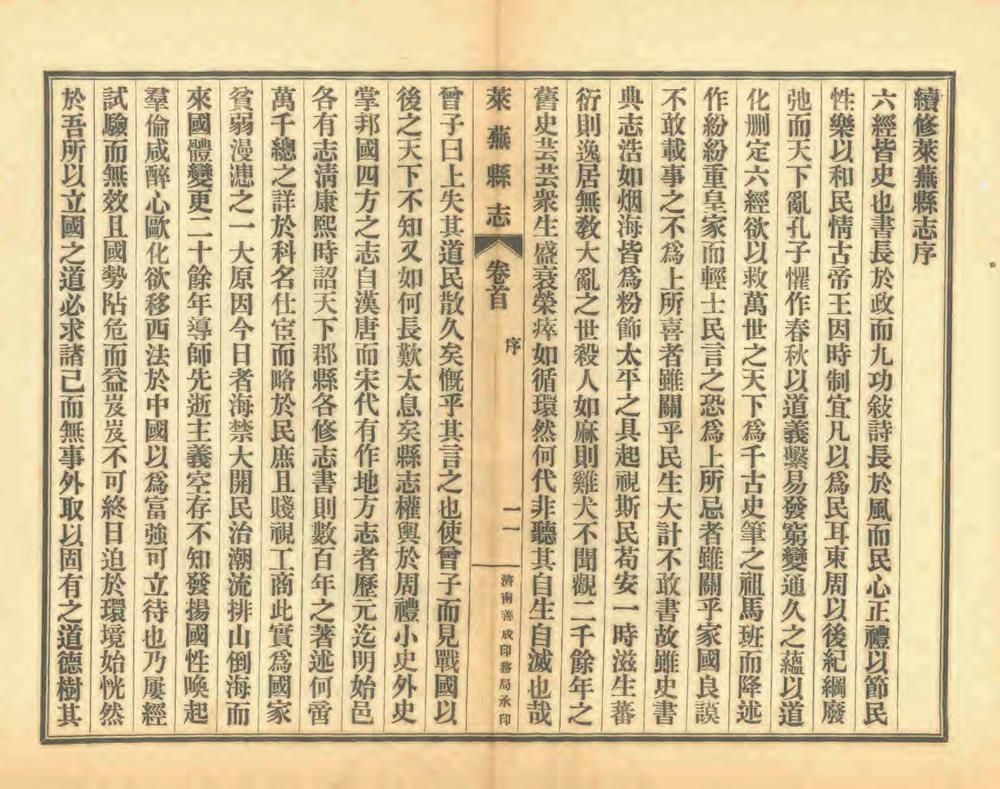 續修萊蕪縣志序
六經皆史也書長於政而九功敍詩長於風而民心正禮以節民
性樂以和民情古帝王因時制宜凡以爲民耳東周以後紀綱廢
弛而天下亂孔子懼作春秋以道義繫易發窮變通久之蘊以道
化删定六經欲以救萬世之天下爲千古史筆之祖馬班而降述
作紛紛重皇家而輕士民言之恐爲上所忌者雖關乎家國良謨
不敢載事之不爲上所喜者雖關乎民生大計不敢書故雖史書
典志浩如烟海皆爲粉飾太平之具起視斯民苟安一時滋生蕃
衍則逸居無教大亂之世殺人如麻則雞犬不聞觀二千餘年之
舊史芸芸衆生盛衰榮瘁如循環然何代非聽其自生自滅也哉
萊蕪縣志
卷首
序
一一
濟南善成印務局承印
曾子曰上失其道民散久矣慨乎其言之也使曾子而見戰國以
後之天下不知又如何長歎太息矣縣志權輿於周禮小史外史
掌邦國四方之志自漢唐而宋代有作地方志者歷元迄明始邑
各有志淸康熙時詔天下郡縣各修志書則數百年之著述何啻
萬千總之詳於科名仕宦而略於民庶且賤視工商此實爲國家
貧弱漫漶之一大原因今日者海禁大開民治潮流排山倒海而
來國體變更二十餘年導師先逝主義空存不知發揚國性喚起
羣倫咸醉心歐化欲移西法於中國以爲富強可立待也乃屢經
試驗而無效且國勢阽危而益岌岌不可終日迫於環境始恍然
於吾所以立國之道必求諸己而無事外取以固有之道德樹其